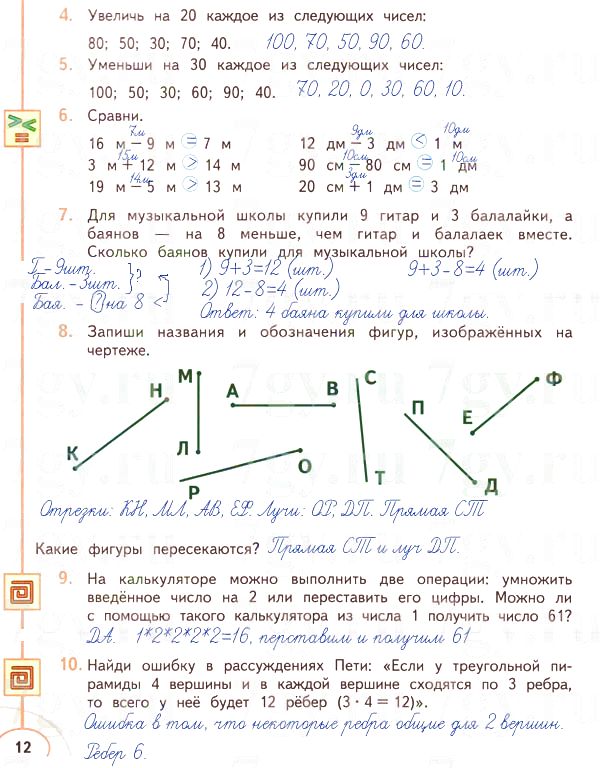 4. Увеличь на 20 каждое из следующих чисел:
80; 50; 30; 70; 40. 100, 70, 50, 90, 60.
5. Уменьши на 30 каждое из следующих чисел:
100; 50; 30; 60; 90; 40. 70, 20, 0, 30, 60, 10.
6. Сравни.
7м 9дм 10дм
16 м − 9 м = 7 м 12 дм − 3 дм < 1 м
15м 10см 10см
3 м + 12 м > 14 м 90 см − 80 см = 1 дм
14м 3дм
19 м − 5 м > 13 м 20 см + 1 дм = 3 дм
7. Для музыкальной школы купили 9 гитар и 3 балалайки, а
баянов — на 8 меньше, чем гитар и балалаек вместе.
Сколько баянов купили для музыкальной школы?
Г. - 9шт. 1) 9+3=12 (шт.) 9+3-8=4 (шт.)
Бал. - 3шт. 2) 12-8=4 (шт.)
Бая. - ? на 8 < Ответ: 4 баяна купили для школы.
8. Запиши названия и обозначения фигур, изображённых на
чертеже.
М С Ф
Н А В П
Е
К Л О
Р Т Д
Отрезки: КН, МЛ, АВ, ЕФ. Лучи: ОР, ДП. Прямая СТ
Какие фигуры пересекаются? Прямая СТ и луч ДП.
9. На калькуляторе можно выполнить две операции: умножить
введённое число на 2 или переставить его цифры. Можно ли
с помощью такого калькулятора из числа 1 получить число 61?
ДА. 1*2*2*2*2=16, перставим и получим 61
10. Найди ошибку в рассуждениях Пети: «Если у треугольной пи-
рамиды 4 вершины и в каждой вершине сходятся по 3 ребра,
то всего у неё будет 12 рёбер (3 · 4 = 12)».
Ошибка в том, что некоторые ребра общие для 2 вершин.
12 Ребер 6.